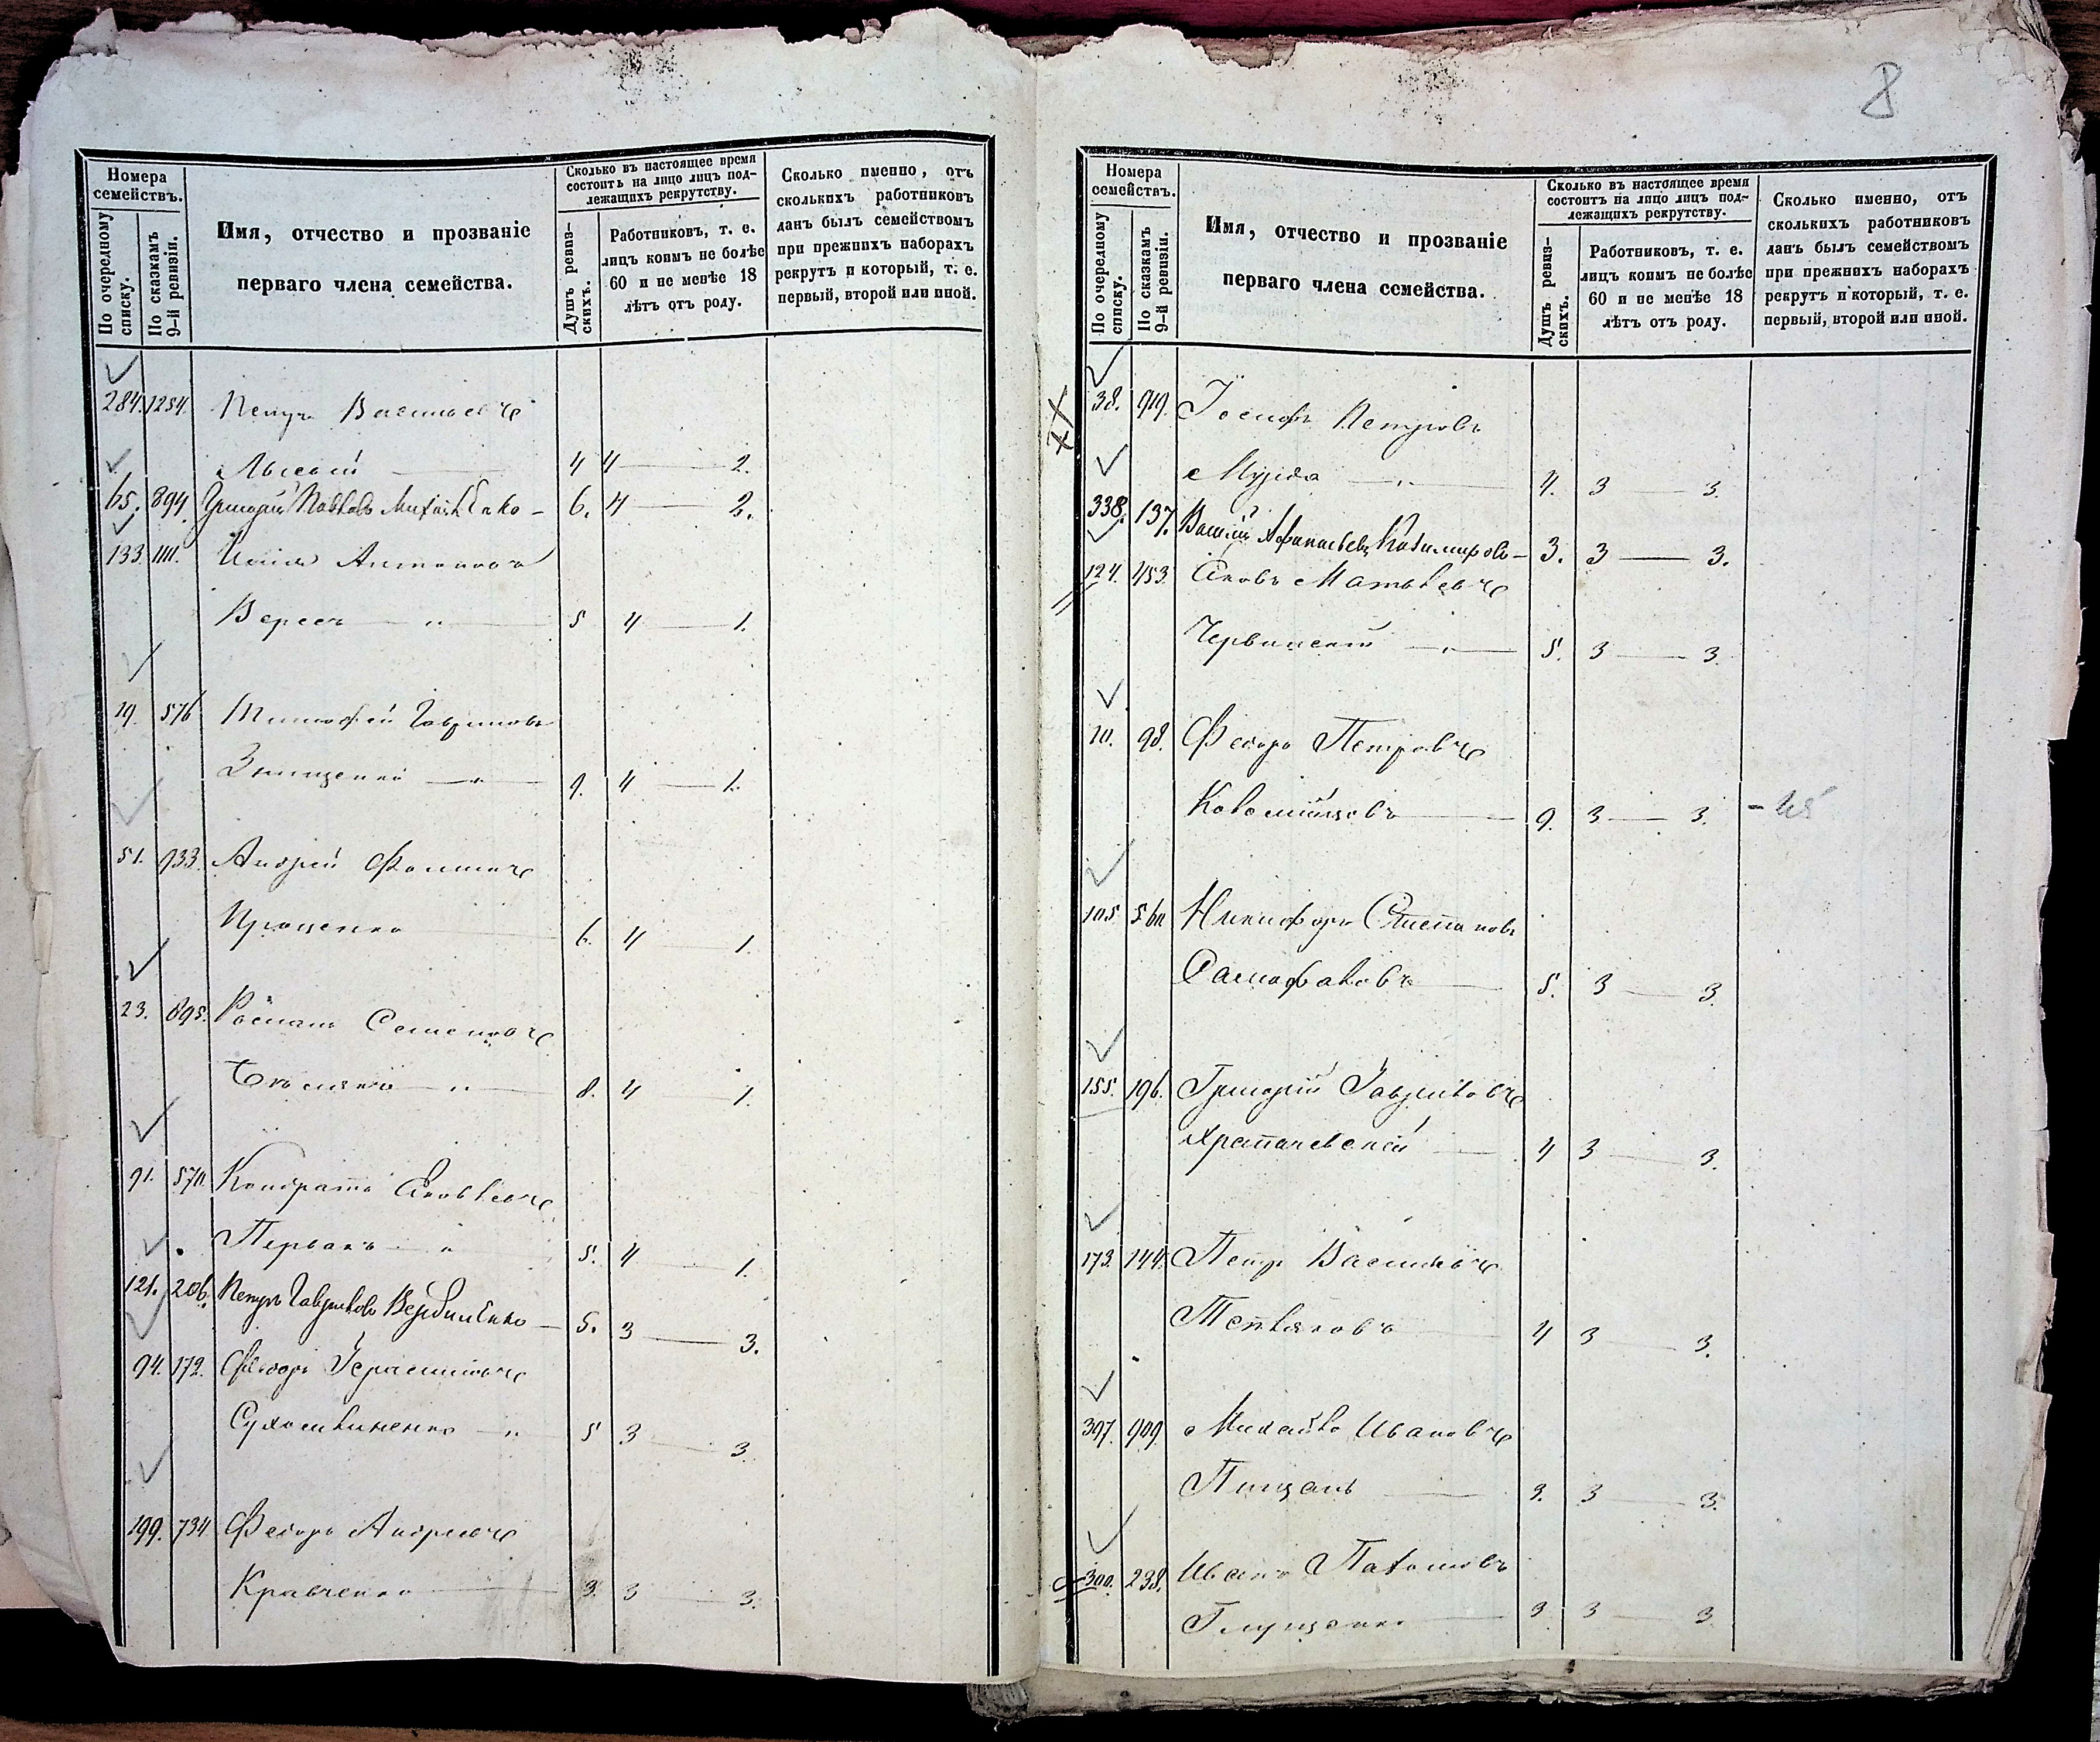 8
Номера
семействъ.
По очередному
списку.
По сказкамъ
9-й ревизіи.
Имя, отчество и прозваніе
перваго члена семейства.
Сколько въ настоящее время
состоитъ на лицо лицъ под-
лежащихъ рекрутству.
Душъ ревиз-
скихъ.
Работниковъ, т. е.
лицъ коимъ не болѣе
60 и не менѣе 18
лѣтъ отъ роду.
Сколько именно, отъ
сколькихъ работниковъ
данъ былъ семействомъ
при прежнихъ наборахъ
рекрутъ и который, т. е.
первый, второй или иной.
284. 1254. Петръ Васильевъ
Лысый 4 4 — 2.
65. 894. Григорій Павловъ Михайленко — 6. 4 — 2.
133. 1111. Антоновъ
Вересъ — „ — 5 4 — 1.
19. 576 Тимофей Гавриловъ
9. 4 — 1.
51. 933. Андрей Фоминъ
Проценко 6. 4 — 1.
23. 895. Романъ Семеновъ
8. 4 — 1.
91. 570. Кондратъ Яковлевъ
Первакъ — „ 5. 4 — 1.
121. 206. Петръ Гавриловъ Вербиленко — 5. 3 — 3.
94. 172. Федоръ Герасимовъ
Сухомлиненко — „ — 5 3 — 3.
199. 734. Федоръ Андреевъ
Кравченко 3. 3 — 3.
Номера
семействъ.
По очередному
списку.
По сказкамъ
9-й ревизіи.
Имя, отчество и прозваніе
перваго члена семейства.
Сколько въ настоящее время
состоитъ на лицо лицъ под-
лежащихъ рекрутству.
Душъ ревиз-
скихъ.
Работниковъ, т. е.
лицъ коимъ не болѣе
60 и не менѣе 18
лѣтъ отъ роду.
Сколько именно, отъ
сколькихъ работниковъ
данъ былъ семействомъ
при прежнихъ наборахъ
рекрутъ и который, т. е.
первый, второй или иной.
38. 919. Іосифъ Петровъ
4. 3 — 3.
338. 137. Василій Афанасьевъ — 3. 3 — 3.
124. 453. Яковъ Матвѣевъ
Червинскій — „ — 5. 3 — 3.
10. 98. Федоръ Петровъ
Коломійцовъ 9. 3 — 3.
105. 560. Никифоръ Степановъ
Самофаловъ 5. 3 — 3.
155. 196. Григорій Гавриловъ
Храпачевскій 4 3 — 3.
173. 144. Петръ Васильевъ
Тепляковъ 4 3 — 3.
397. 909. Михайло Ивановъ
Пищанъ 3. 3 — 3.
300. 238. Иванъ Пахомовъ
Глущенко 3. 3 — 3